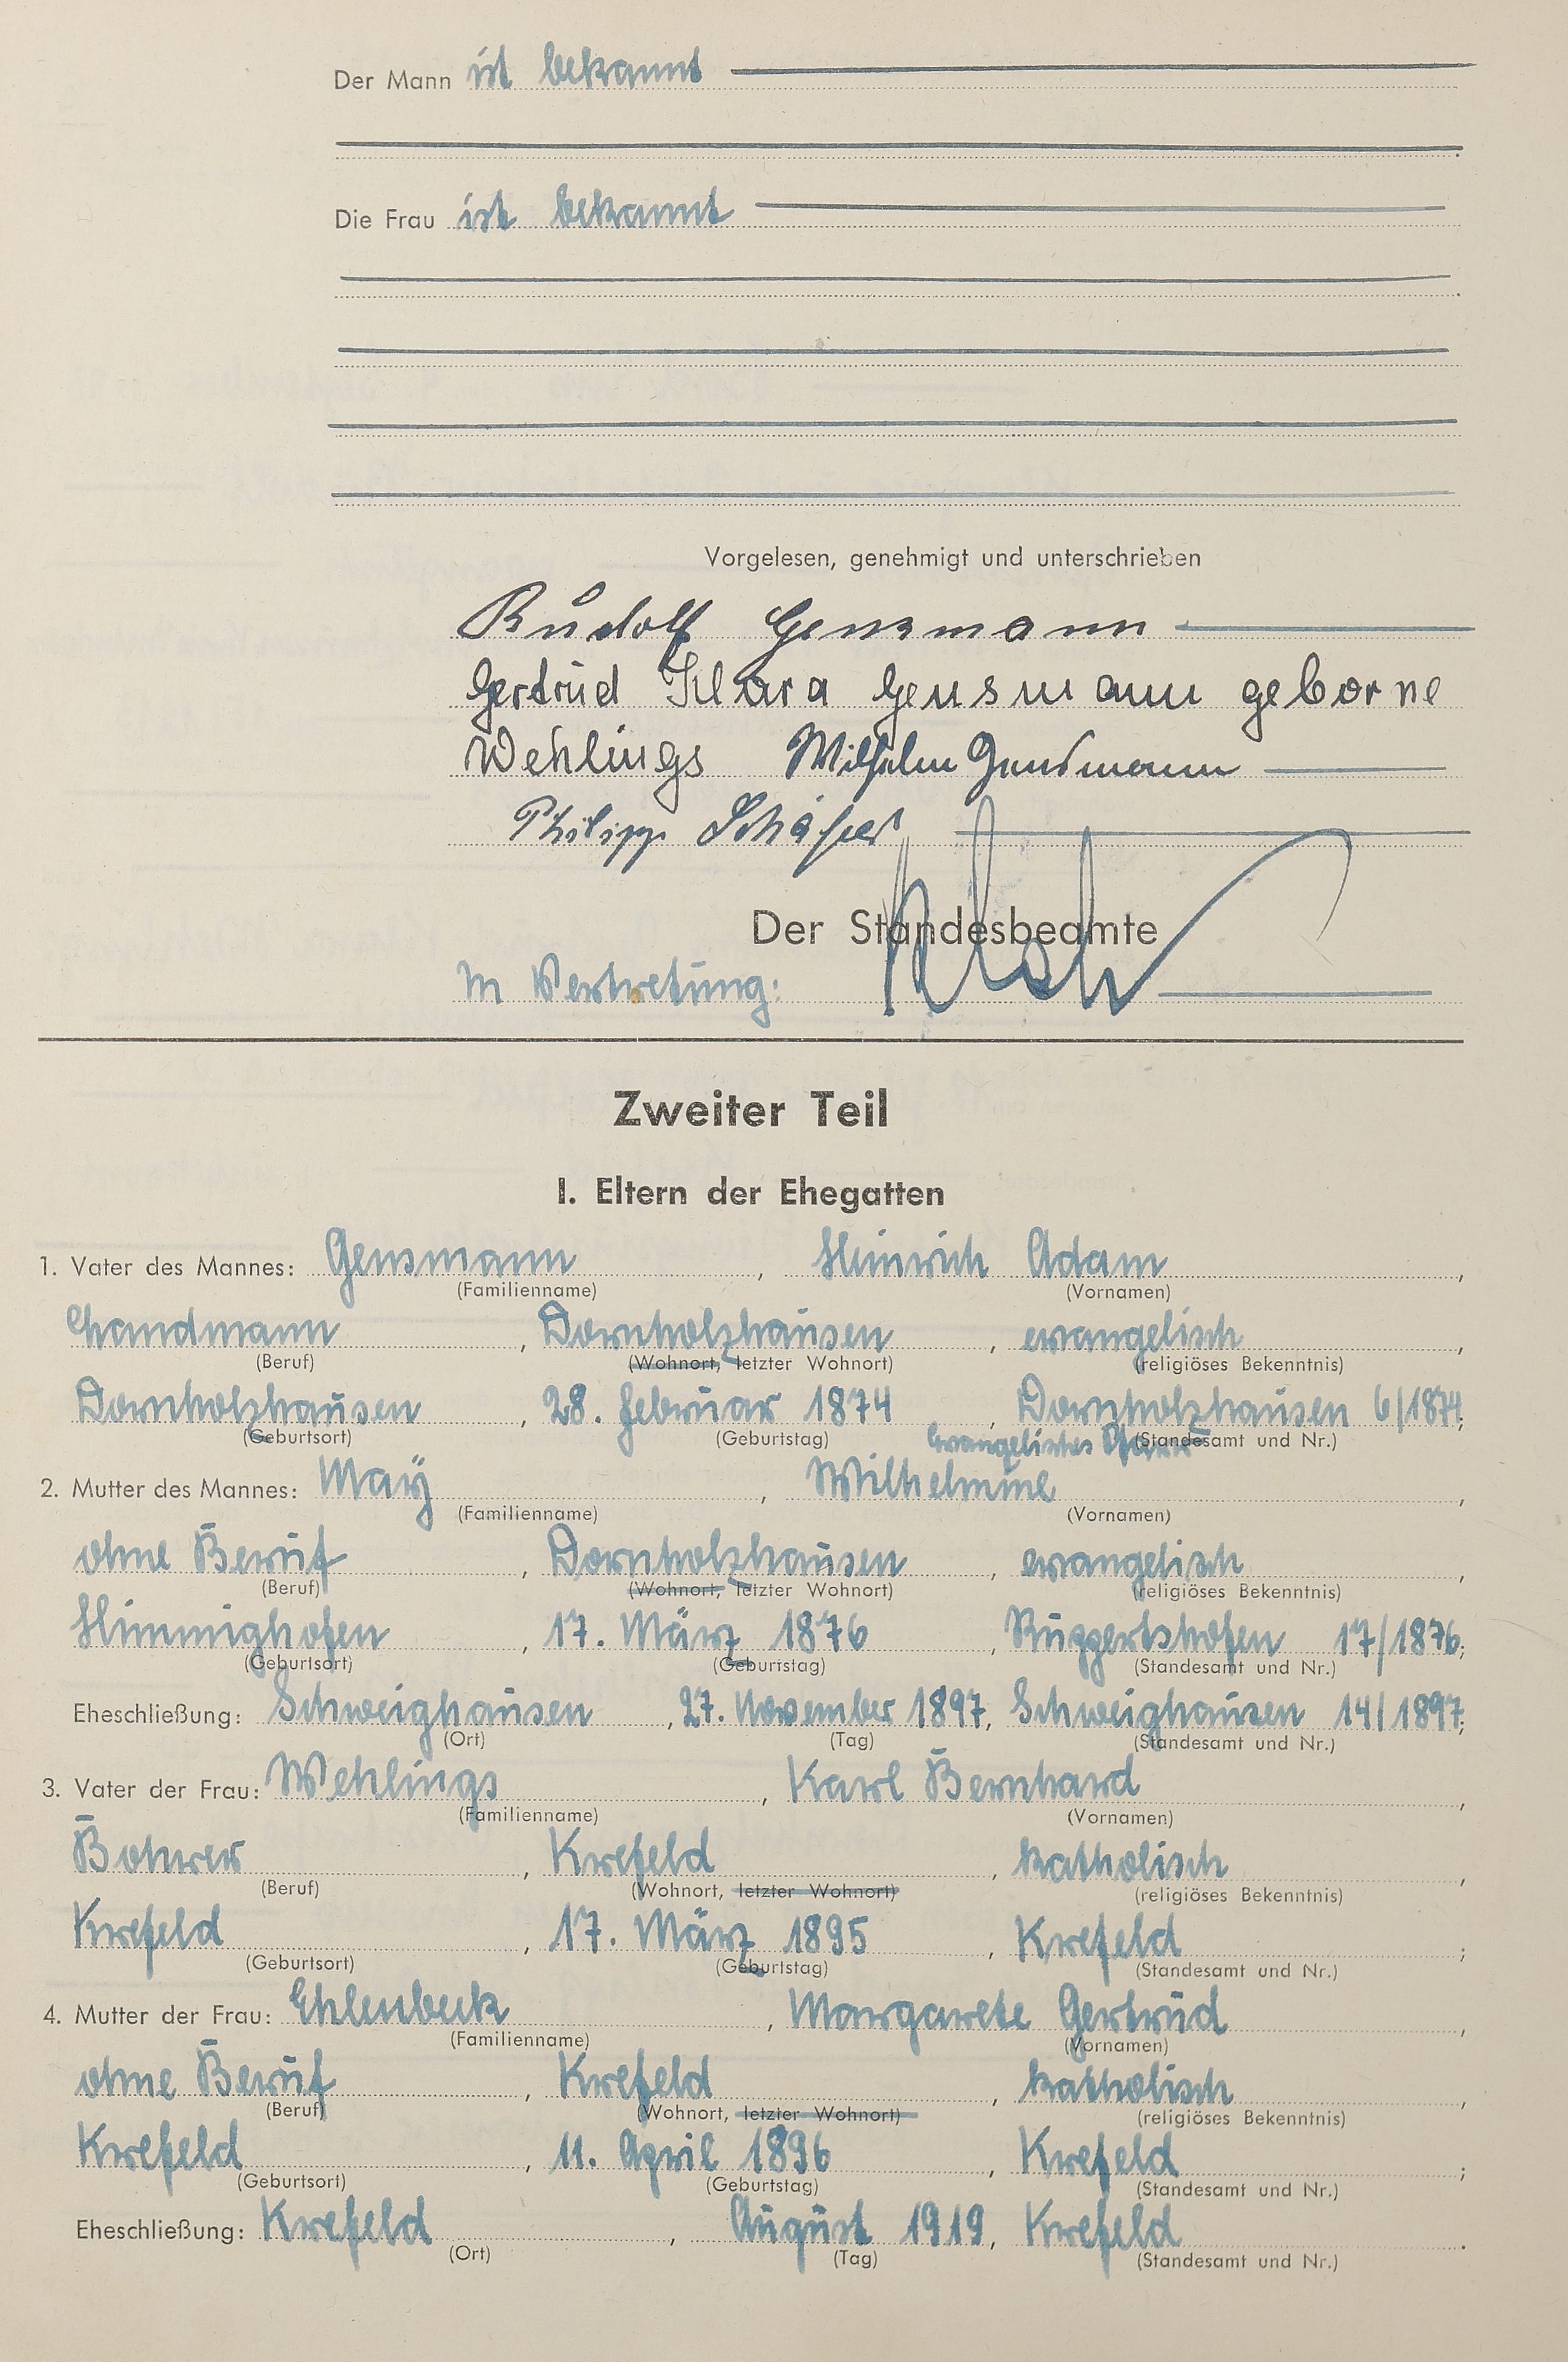 Der Mann ist bekannt
Die Frau ist bekannt
Vorgelesen, genehmigt und unterschrieben
Rudolf Gensmann
Gertrud Klara Gensmann geborne
Wehlings Wilhelm Gensmann
Philipp Schäfer
Der Standesbeamte
In Vertretung:
Zweiter Teil
I. Eltern der Ehegatten
1. Vater des Mannes: Gensmann, Heinrich Adam,
(Familienname) (Vornamen)
Landmann, Dornholzhausen, evangelisch,
(Beruf) (Wohnort, letzter Wohnort) (religiöses Bekenntnis)
Dornholzhausen, 28. Februar 1874, Dornholzhausen 6/1874;
(Geburtsort) (Geburtstag) (Standesamt und Nr.)
2. Mutter des Mannes: May, Wilhelmine,
(Familienname) (Vornamen)
ohne Beruf, Dornholzhausen, evangelisch,
(Beruf) (Wohnort, letzter Wohnort) (religiöses Bekenntnis)
Himmighofen, 17. März 1876, Ruppertshofen 17/1876;
(Geburtsort) (Geburtstag) (Standesamt und Nr.)
Eheschließung: Schweighausen, 27. November 1897, Schweighausen 14/1897;
(Ort) (Tag) (Standesamt und Nr.)
3. Vater der Frau: Wehlings, Karl Bernhard,
(Familienname) (Vornamen)
Bohrer, Krefeld, katholisch,
(Beruf) (Wohnort, letzter Wohnort) (religiöses Bekenntnis)
Krefeld, 17. März 1895, Krefeld;
(Geburtsort) (Geburtstag) (Standesamt und Nr.)
4. Mutter der Frau: Ehlenbeck, Margarete Gertrud,
(Familienname) (Vornamen)
ohne Beruf, Krefeld, katholisch,
(Beruf) (Wohnort, letzter Wohnort) (religiöses Bekenntnis)
Krefeld, 11. April 1896, Krefeld;
(Geburtsort) (Geburtstag) (Standesamt und Nr.)
Eheschließung: Krefeld, August 1919, Krefeld.
(Ort) (Tag) (Standesamt und Nr.)